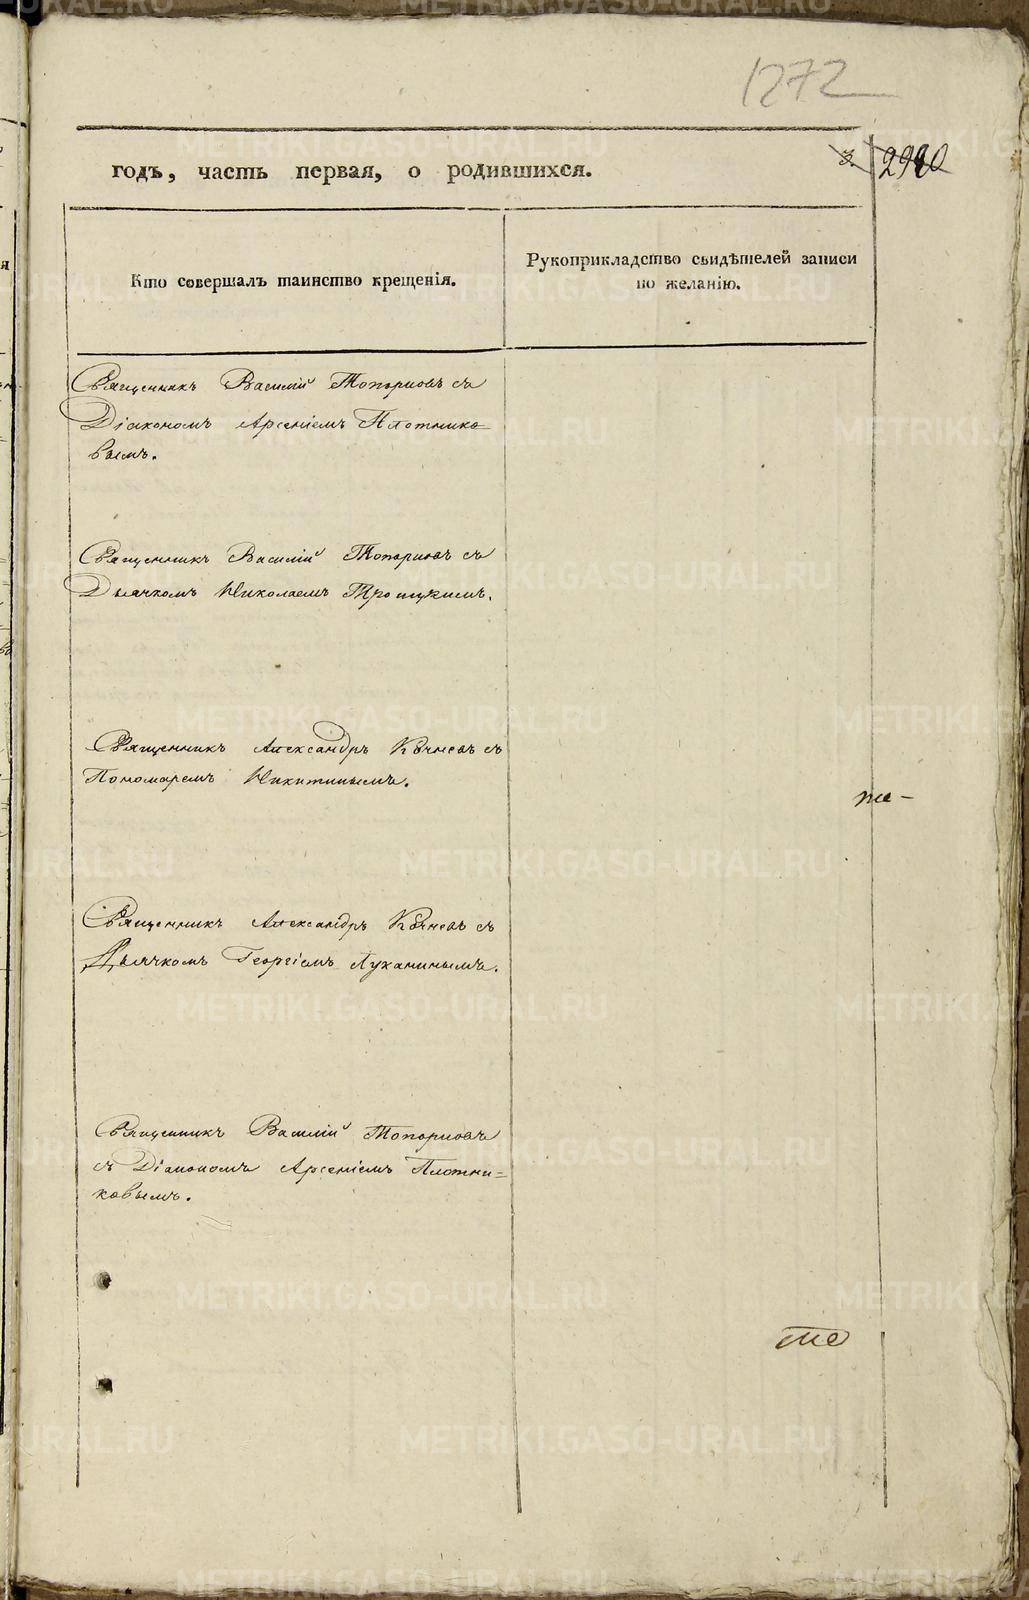 1272
2980
годъ, часть первая, о родившихся.
Кто совершалъ таинство крещенія.
Рукоприкладство свидѣтелей записи
по желанію.
Священникъ Василій Топорковъ съ
Діакономъ Арсеніемъ Плотнико=
вымъ.
Священникъ Василій Топорковъ съ
Дьячкомъ Николаемъ Троицкимъ.
Священникъ Александръ съ
Пономаремъ Никитинымъ.
Священникъ Александръ съ
Дьячкомъ Георгіемъ Луканинымъ.
Священникъ Василій Топорковъ
съ Діакономъ Арсеніемъ Плотни=
ковымъ.
METRIKI.GASO-URAL.RU